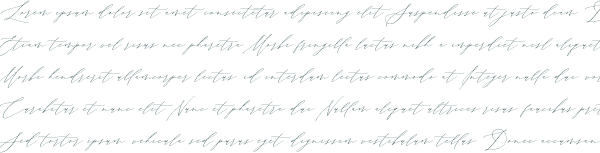 Lorem ipsum dolor sit amet consectetur adipiscing elit Suspendisse at justo diam
Etiam tempor vel risus nec pharetra Morbi fringilla luctus nibh a imperdiet nisl aliquet
Morbi hendrerit ullamcorper lectus id interdum lectus commodo at Integer nulla dui
Curabitur et nunc elit Nunc et pharetra dui Nullam aliquet ultrices risus faucibus
Sed tortor ipsum vehicula sed purus eget dignissim vestibulum tellus Donec accumsan